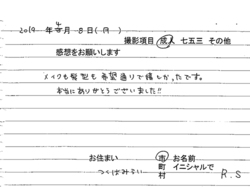 2019 年 4 月 8 日 (月)
撮影項目 成人 七五三 その他
感想をお願いします
メイクも髪型も希望通りで嬉しかったです。
本当にありがとうございました!!
お住まい 市 町 村 お名前 イニシャルで
つくばみらい R.S